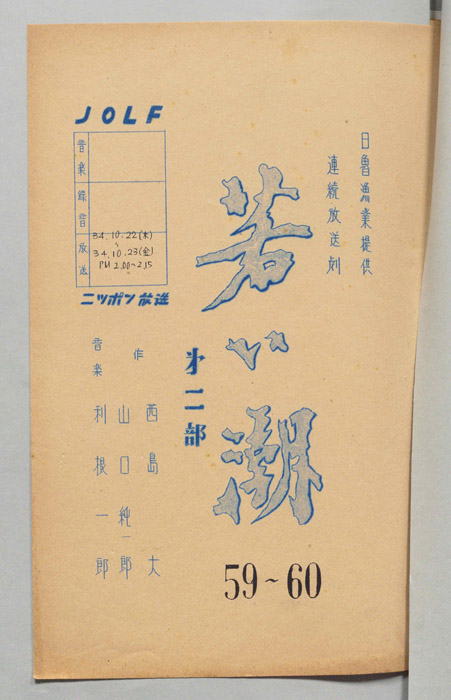 日魯漁業提供
連続放送劇
若い潮
59~60
第二部
JOLF
音楽
録音
放送
34.10.22(木)
~
34.10.23(金)
PM 2.00~2.15
ニッポン放送
作
西島大
山口純一郎
音楽
利根一郎